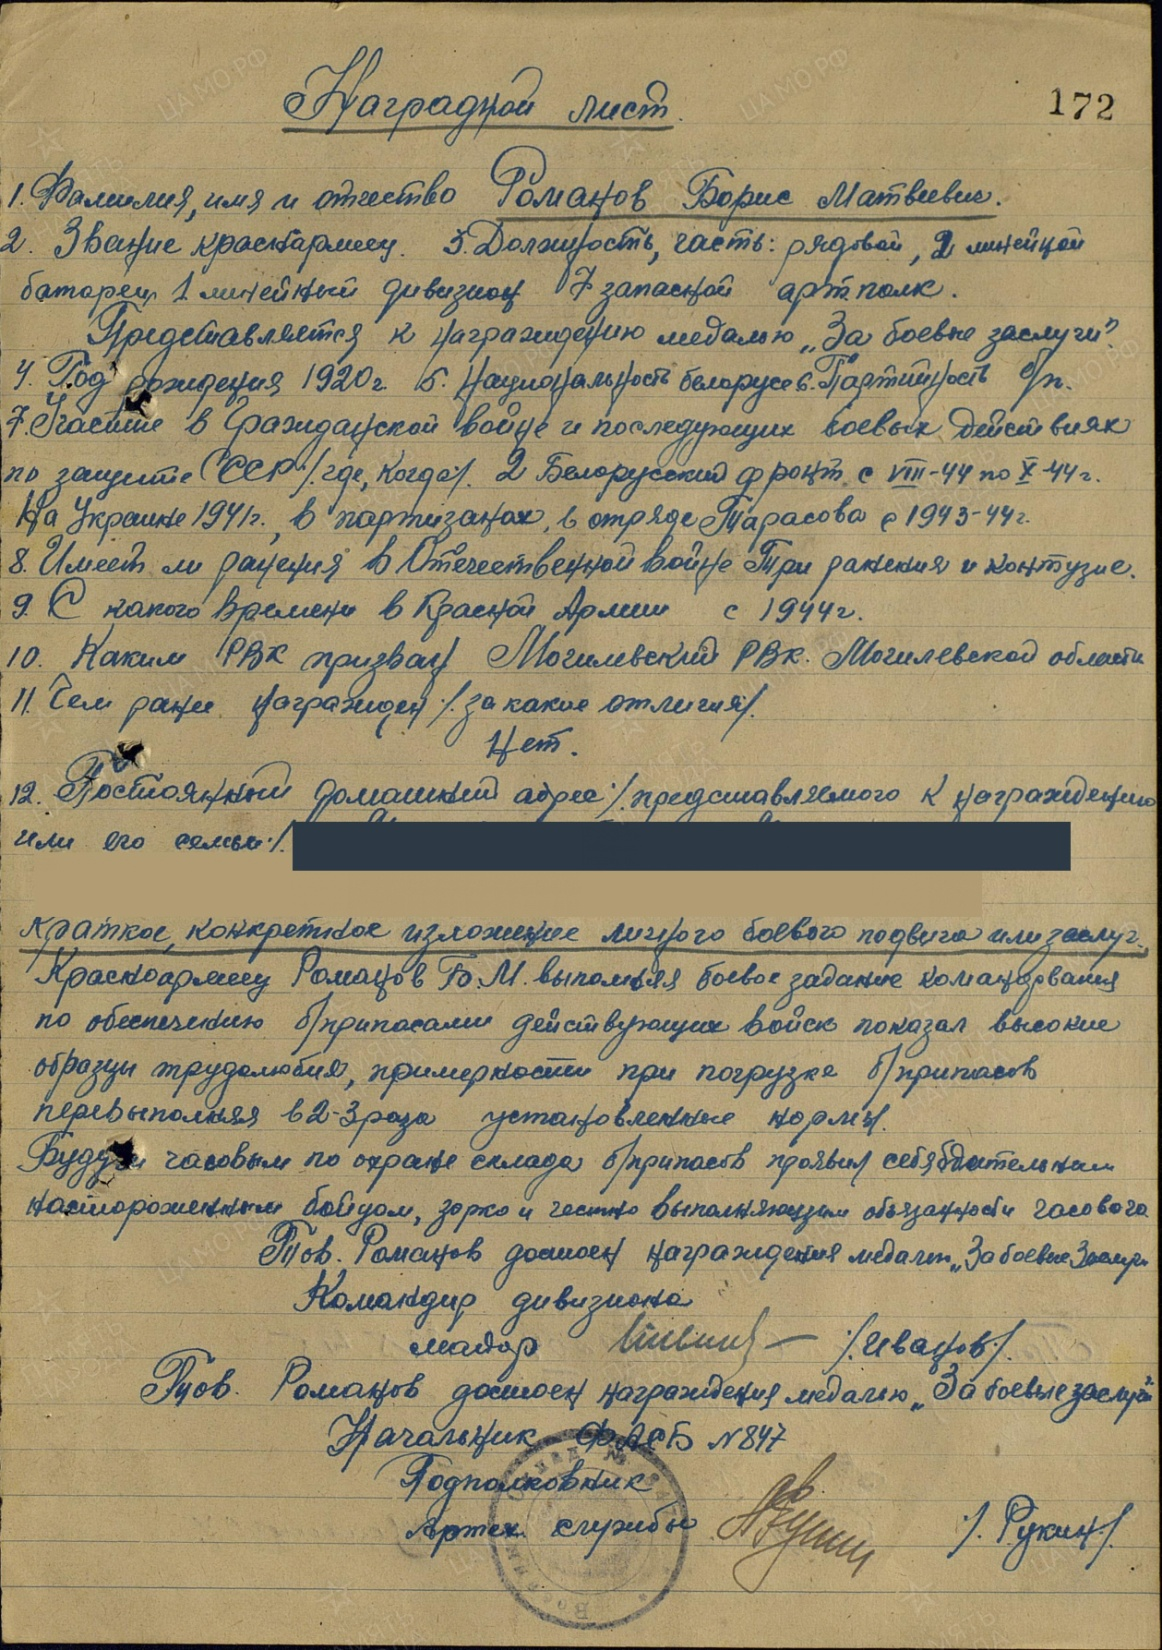 172
Наградной лист.
1. Фамилия, имя и отчество Романов Борис Матвеевич.
2. Звание красноармеец. 3. Должность, часть: рядовой, 2 линейной
батареи 1 линейный дивизион 7 запасной артполк.
Представляется к награждению медалью „За боевые заслуги".
4. Год рождения 1920 г. 5. Национальность белорус 6. Партийность б/п.
7. Участие в Гражданской войне и последующих боевых действиях
по защите СССР /. где, когда/. 2 Белорусский фронт с VIII-44 по X-44 г.
На Украине 1941 г., в партизанах, в отряде Тарасова с 1943-44 г.
8. Имеет ли ранения в Отечественной войне Три ранения и контузие.
9. С какого времени в Красной Армии с 1944 г.
10. Каким РВК призван Могилевский РВК. Могилевской области
11. Чем ранее награжден /. за какие отличия/.
Нет.
12. Постоянный домашний адрес /. представляемого к награждению
или его семьи:/.
Краткое, конкретное изложение личного боевого подвига или заслуг.
Красноармеец Романов Б. М. выполняя боевое задание командования
по обеспечению б/припасами действующих войск показал высокие
образцы трудолюбия, примерности при погрузке б/припасов
перевыполняя в 2-3 раза установленные нормы.
Будучи часовым по охране склада б/припасов проявил себя бдительным
настороженным бойцом, зорко и честно выполняющим обязанности часового.
Тов. Романов достоен награждения медалью „За боевые Заслуги
Командир дивизиона
майор /. Иванов/.
Тов. Романов достоен награждения медалью „За боевые заслуги"
Начальник ФАСБ N 847
Подполковник
Артех службы /. Рукин/.